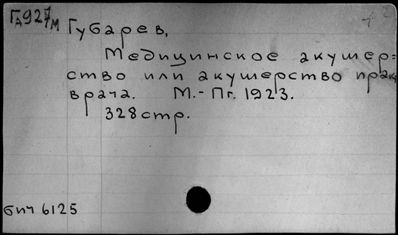 Гд927/7м
Губарев,
Медицинское акушер=
ство или акушерство прак.
врача. М.-Пг. 1923.
328 стр.
бич 6125